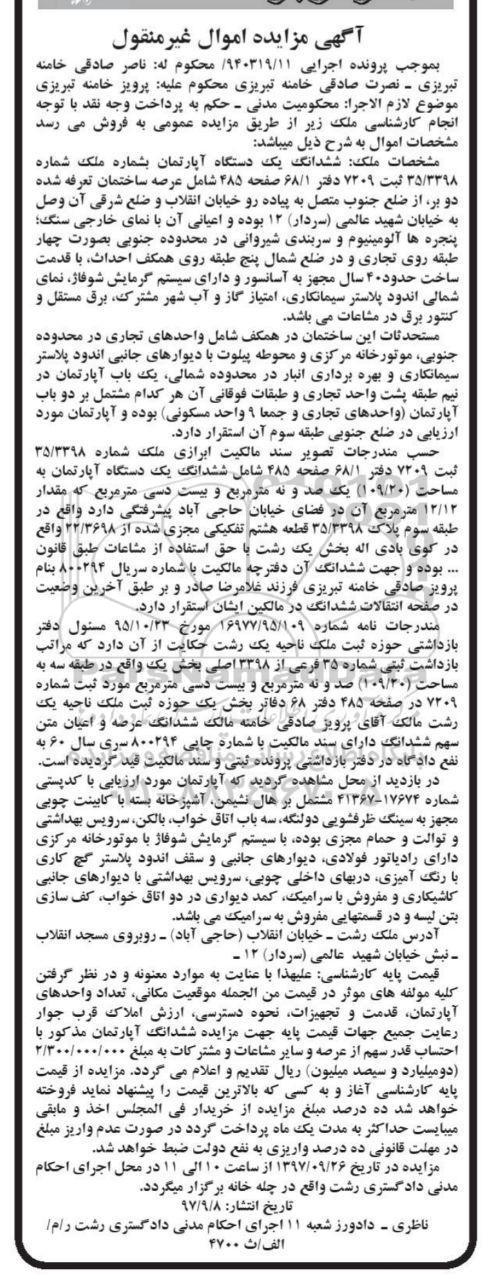 آگهی مزایده اموال غیرمنقول
بموجب پرونده اجرایی ۹۴۰۳۱۹/۱۱/ محکوم له: ناصر صادقی خامنه
تبریزی ـ نصرت صادقی خامنه تبریزی محکوم علیه: پرویز خامنه تبریزی
موضوع لازم الاجرا: محکومیت مدنی ـ حکم به پرداخت وجه نقد با توجه
انجام کارشناسی ملک زیر از طریق مزایده عمومی به فروش می رسد
مشخصات اموال به شرح ذیل میباشد:
مشخصات ملک: ششدانگ یک دستگاه آپارتمان بشماره ملک شماره
۳۵/۳۳۹۸ ثبت ۷۲۰۹ دفتر ۶۸/۱ صفحه ۴۸۵ شامل عرصه ساختمان تعرفه شده
دو بر، از ضلع جنوب متصل به پیاده رو خیابان انقلاب و ضلع شرقی آن وصل
به خیابان شهید عالمی (سردار) ۱۲ بوده و اعیانی آن با نمای خارجی سنگ؛
پنجره ها آلومینیوم و سربندی شیروانی در محدوده جنوبی بصورت چهار
طبقه روی تجاری و در ضلع شمال پنج طبقه روی همکف احداث، با قدمت
ساخت حدود۴۰ سال مجهز به آسانسور و دارای سیستم گرمایش شوفاژ، نمای
شمالی اندود پلاستر سیمانکاری، امتیاز گاز و آب شهر مشترک، برق مستقل و
کنتور برق در مشاعات می باشد.
مستحدثات این ساختمان در همکف شامل واحدهای تجاری در محدوده
جنوبی، موتورخانه مرکزی و محوطه پیلوت با دیوارهای جانبی اندود پلاستر
سیمانکاری و بهره برداری انبار در محدوده شمالی، یک باب آپارتمان در
نیم طبقه پشت واحد تجاری و طبقات فوقانی آن هر کدام مشتمل بر دو باب
آپارتمان (واحدهای تجاری و جمعا ۹ واحد مسکونی) بوده و آپارتمان مورد
ارزیابی در ضلع جنوبی طبقه سوم آن استقرار دارد.
حسب مندرجات تصویر سند مالکیت ابرازی ملک شماره ۳۵/۳۳۹۸
ثبت ۷۲۰۹ دفتر ۶۸/۱ صفحه ۴۸۵ شامل ششدانگ یک دستگاه آپارتمان به
مساحت (۱۰۹/۲۰) یک صد و نه مترمربع و بیست دسی مترمربع که مقدار
۱۲/۱۲ مترمربع آن در فضای خیابان حاجی آباد پیشرفتگی دارد واقع در
طبقه سوم پلاک ۳۵/۳۳۹۸ قطعه هشتم تفکیکی مجزی شده از ۲۲/۳۶۹۸ واقع
در کوی بادی اله بخش یک رشت با حق استفاده از مشاعات طبق قانون
... بوده و جهت ششدانگ آن دفترچه مالکیت با شماره سریال ۸۰۰۲۹۴ بنام
پرویز صادقی خامنه تبریزی فرزند غلامرضا صادر و بر طبق آخرین وضعیت
در صفحه انتقالات ششدانگ در مالکین ایشان استقرار دارد.
مندرجات نامه شماره ۱۶۹۷۷/۹۵/۱۰۹ مورخ ۹۵/۱۰/۲۳ مسئول دفتر
بازداشتی حوزه ثبت ملک ناحیه یک رشت حکایت از آن دارد که مراتب
بازداشت ثبتی شماره ۳۵ فرعی از ۳۳۹۸ اصلی بخش یک واقع در طبقه سه به
مساحت (۱۰۹/۲۰) صد و نه مترمربع و بیست دسی مترمربع مورد ثبت شماره
۷۲۰۹ در صفحه ۴۸۵ دفتر ۶۸ دفاتر بخش یک حوزه ثبت ملک ناحیه یک
رشت مالک آقای پرویز صادقی خامنه مالک ششدانگ عرصه و اعیان متن
سهم ششدانگ دارای سند مالکیت با شماره چاپی ۸۰۰۲۹۴ سری سال ۶۰ به
نفع دادگاه در دفتر بازداشتی پرونده ثبتی و سند مالکیت قید گردیده است.
در بازدید از محل مشاهده گردید که آپارتمان مورد ارزیابی با کدپستی
شماره ۱۷۶۷۴-۴۱۳۶۷ مشتمل بر هال نشیمن، آشپزخانه بسته با کابینت چوبی
مجهز به سینگ ظرفشویی دولنگه، سه باب اتاق خواب، بالکن، سرویس بهداشتی
و توالت و حمام مجزی بوده، با سیستم گرمایش شوفاژ با موتورخانه مرکزی
دارای رادیاتور فولادی، دیوارهای جانبی و سقف اندود پلاستر گچ کاری
با رنگ آمیزی، دربهای داخلی چوبی، سرویس بهداشتی با دیوارهای جانبی
کاشیکاری و مفروش با سرامیک، کمد دیواری در دو اتاق خواب، کف سازی
بتن لیسه و در قسمتهایی مفروش به سرامیک می باشد.
آدرس ملک رشت ـ خیابان انقلاب (حاجی آباد) ـ روبروی مسجد انقلاب
ـ نبش خیابان شهید عالمی (سردار) ۱۲ ـ
قیمت پایه کارشناسی: علیهذا با عنایت به موارد معنونه و در نظر گرفتن
کلیه مولفه های موثر در قیمت من الجمله موقعیت مکانی، تعداد واحدهای
آپارتمان، قدمت و تجهیزات، نحوه دسترسی، ارزش املاک قرب جوار
رعایت جمیع جهات قیمت پایه جهت مزایده ششدانگ آپارتمان مذکور با
احتساب قدر سهم از عرصه و سایر مشاعات و مشترکات به مبلغ ۲/۳۰۰/۰۰۰/۰۰۰
(دومیلیارد و سیصد میلیون) ریال تقدیم و اعلام می گردد. مزایده از قیمت
پایه کارشناسی آغاز و به کسی که بالاترین قیمت را پیشنهاد نماید فروخته
خواهد شد ده درصد مبلغ مزایده از خریدار فی المجلس اخذ و مابقی
میبایست حداکثر به مدت یک ماه پرداخت گردد در صورت عدم واریز مبلغ
در مهلت قانونی ده درصد واریزی به نفع دولت ضبط خواهد شد.
مزایده در تاریخ ۱۳۹۷/۰۹/۲۶ از ساعت ۱۰ الی ۱۱ در محل اجرای احکام
مدنی دادگستری رشت واقع در چله خانه برگزار میگردد.
تاریخ انتشار: ۹۷/۹/۸
ناظری ـ دادورز شعبه ۱۱ اجرای احکام مدنی دادگستری رشت ر/م/
الف/ث ۴۷۰۰